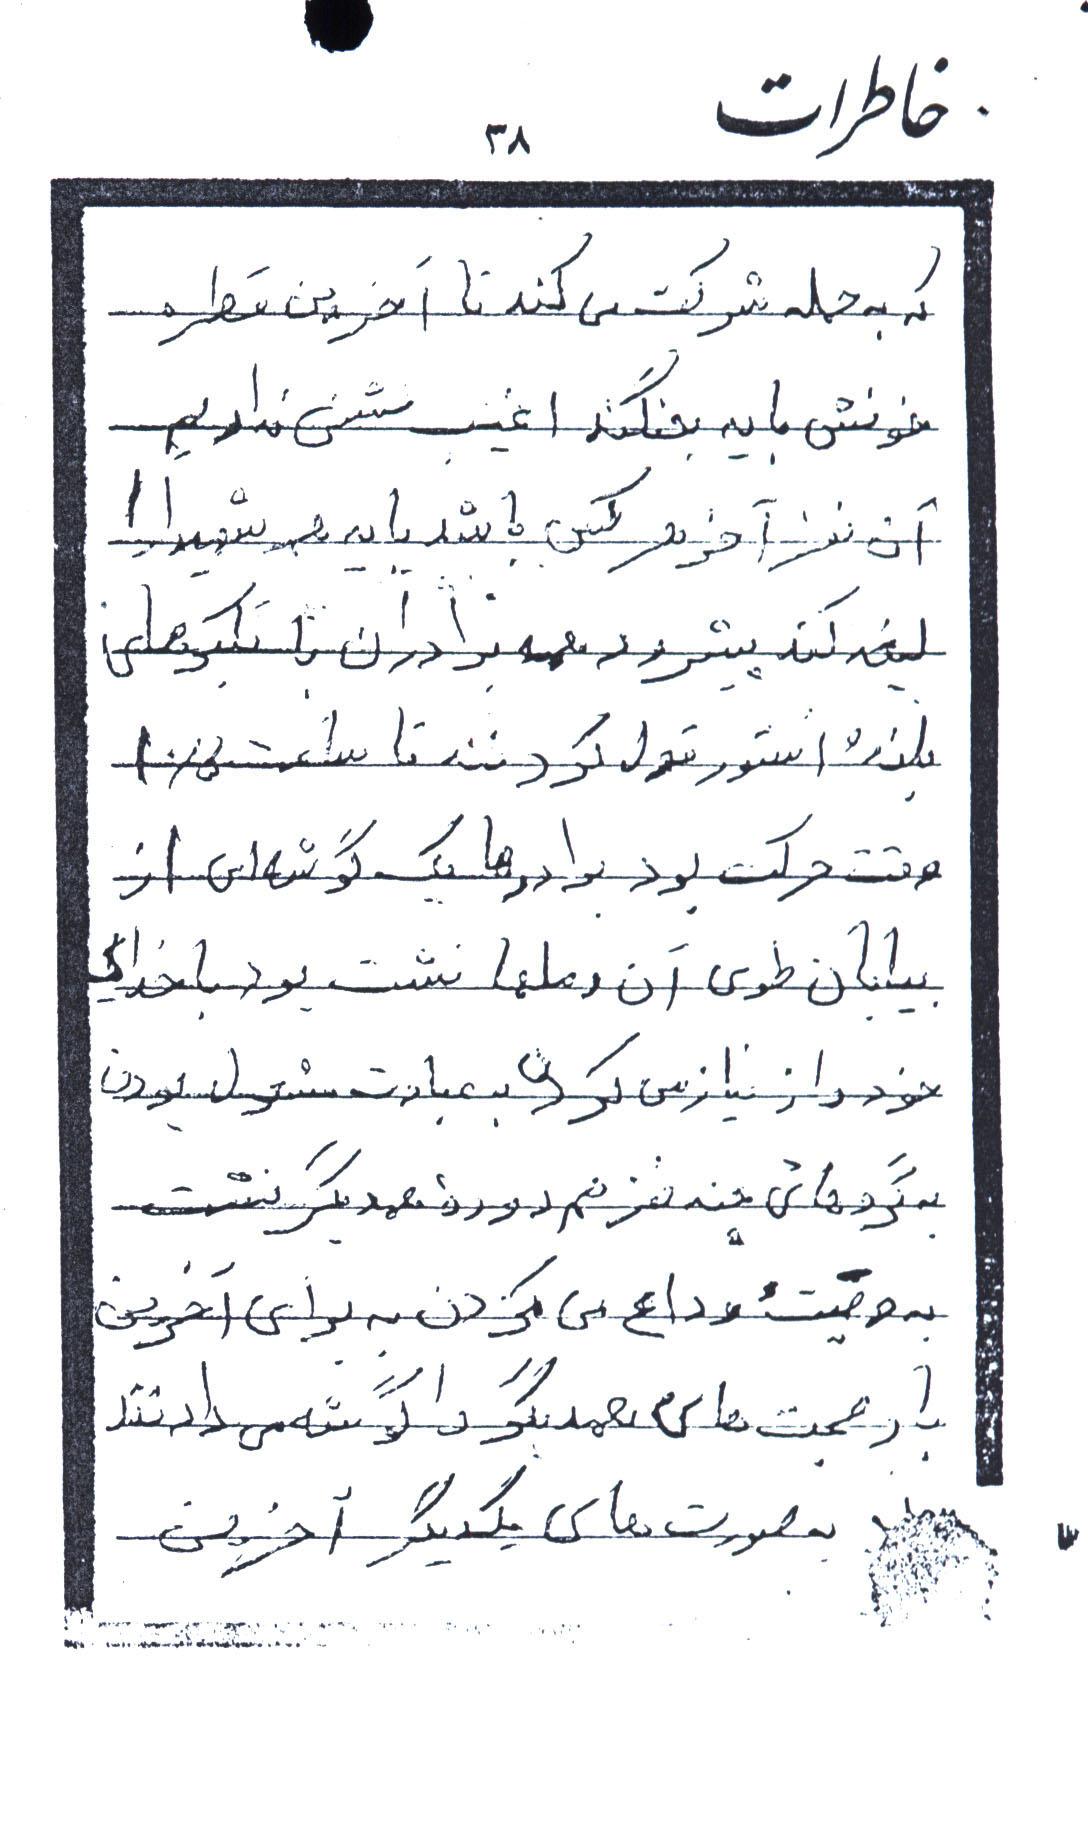 خاطرات
۳۸
که به حمله شرکت می کند تا آخرین قطره
خونش باید بجنگند اغیب نشنی نداریم
آن نفر آخر هر کس باشد باید هر شهیدا
کند پیشرود همه برادران با تکبرهای
بلند استور قبول کردنند تا ساعت ۱۰
وقت حرکت بود برادرها یک گوشه‌ای از
بیابان طوی آن رملها نشت بود با خدای
خود راز نیاز می کرد به عبادت مشغول بودن
به گروهای چند نفر هم دوره همدیگر نشت
به وصیت وداع می کردن به برای آخرین
بار صحبت های همدیگر را گوشه می دادنند
به صورت های یکدیگر آخرین